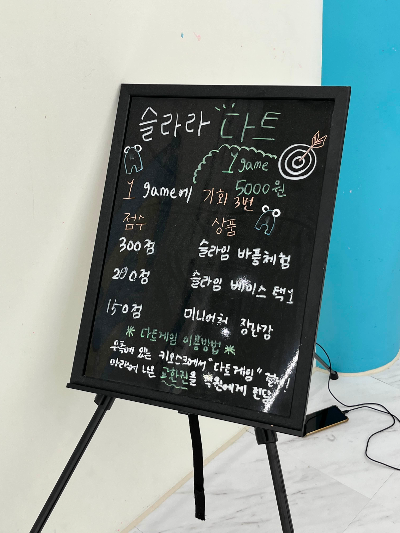 슬라라 다트
1 game
5000원
1 game에 기회 3번
점수 상품
300점 슬라임 바풀체험
200점 슬라임 베이스 택1
150점 미니어처 장난감
※ 다트게임 이용방법 ※
우측에 있는 키오스크에서 "다트게임" 결제!
아래에 나온 교환권을 직원에게 전달!